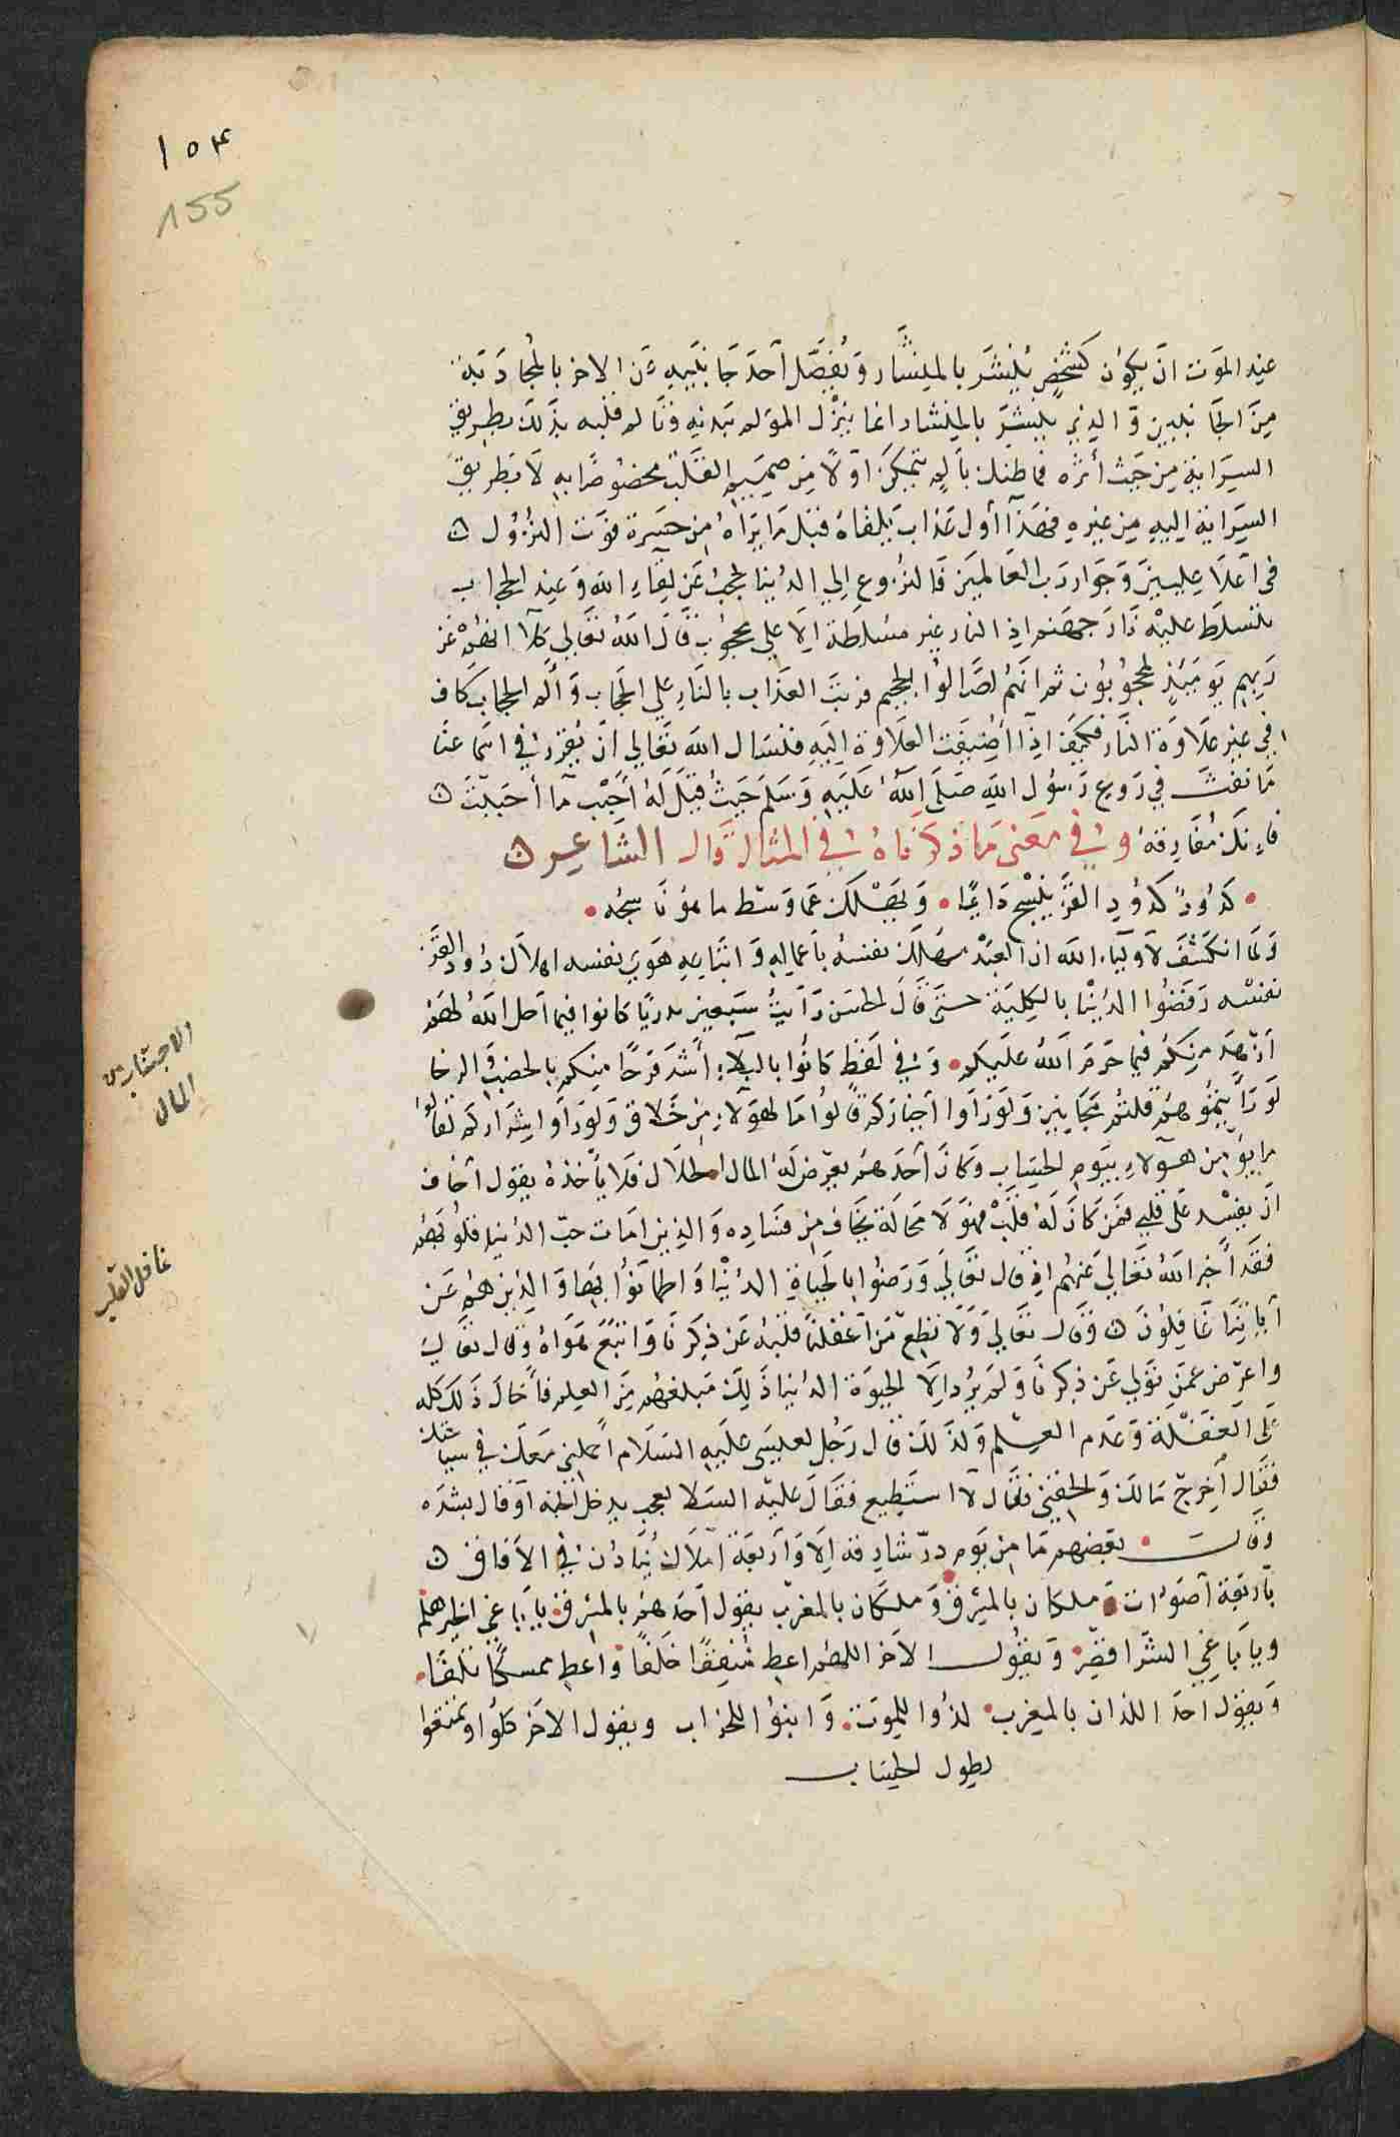 ١٥٤
155
عند الموت ان يكون كشخص ينشر بالمنشار ويفصل احد جانبيه عن الاخر بالمجاذبة
من الجانبين والذي ينشر بالمنشار انما ينزل المؤلم ببدنه ويألم قلبه بذلك بطريق
السراية من حيث أثره فما ظنك بألم يتمكن اولا من صميم القلب مخصوصا به لا بطريق
السراية اليه من غيره فهذا أول عذاب يلقاه قبل ما يراه من حسرة فوت النزول
في اعلا عليين وجوار رب العالمين فالنزوع إلى الدنيا يحجب عن لقاء الله وعند الحجاب
تتسلط عليه نار جهنم اذ النار غير مسلطة الا على محجوب قال الله تعالى كلا انهم عن
ربهم يومئذ لمحجوبون ثم انهم لصالوا الجحيم فرتب العذاب بالنار على الحجاب وألم الحجاب كاف
في غير علاوة النار فكيف اذا اضيفت العلاوة اليه فنسال الله تعالى ان يقرر في اسماعنا
ما نفث في روع رسول الله صلى الله عليه وسلم حيث قيل له أحبب ما أحببت
فانك مفارقه وفي معنى ما ذكرناه في المثال قال الشاعر
كدود كدود القز ينسج دائما ويهلك غما وسط ما هو ناسجه
ولما انكشف لاولياء الله ان العبد مهلك نفسه باعماله واتباعه هوى نفسه اهلاك دود القز
نفسه رفضوا الدنيا بالكلية حتى قال الحسن رأيت سبعين بدريا كانوا فيما احل الله لهم
ازهد منكم فيما حرم الله عليكم وفي لفظ كانوا بالبلاء أشد فرحا منكم بالخصب والرخا
لو رأيتموهم قلتم مجانين ولو رأوا أخياركم قالوا ما لهولاء من خلاق ولو رأوا اشراركم لقالوا
ما يؤمن هولاء بيوم الحساب وكان أحدهم يعرض له المال الحلال فلا يأخذه يقول أخاف
ان يفسد على قلبي فمن كان له قلب فهو لا محالة يخاف من فساده والذين امات حب الدنيا قلوبهم
فقد أخبر الله تعالى عنهم اذ قال تعالى ورضوا بالحياة الدنيا واطمانوا بها والذين هم عن
آياتنا غافلون وقال تعالى ولا تطع من أغفلنا قلبه عن ذكرنا واتبع هواه وقال تعالى
واعرض عمن تولى عن ذكرنا ولم يرد الا الحيوة الدنيا ذلك مبلغهم من العلم فأحال ذلك كله
على الغفلة وعدم العلم ولذلك قال رجل لعيسى عليه السلام احملني معك في سياحتك
فقال أخرج مالك والحقني فقال لا استطيع فقال عليه السلا بعجب يدخل الغني الجنة أو قال بشده
وقال بعضهم ما من يوم ذر شارقه الا واربعة أملاك ينادون في الآفاق
بأربعة أصوات ملكان بالمشرق وملكان بالمغرب يقول أحدهم بالمشرق يا باغي الخير هلم
ويا باغي الشر اقصر ويقول الآخر اللهم اعط منفقا خلفا واعط ممسكا تلفا
ويقول احد اللذان بالمغرب لدوا للموت وابنوا للخراب ويقول الاخر كلوا وتمتعوا
لطول الحساب
المال
غافل القلب